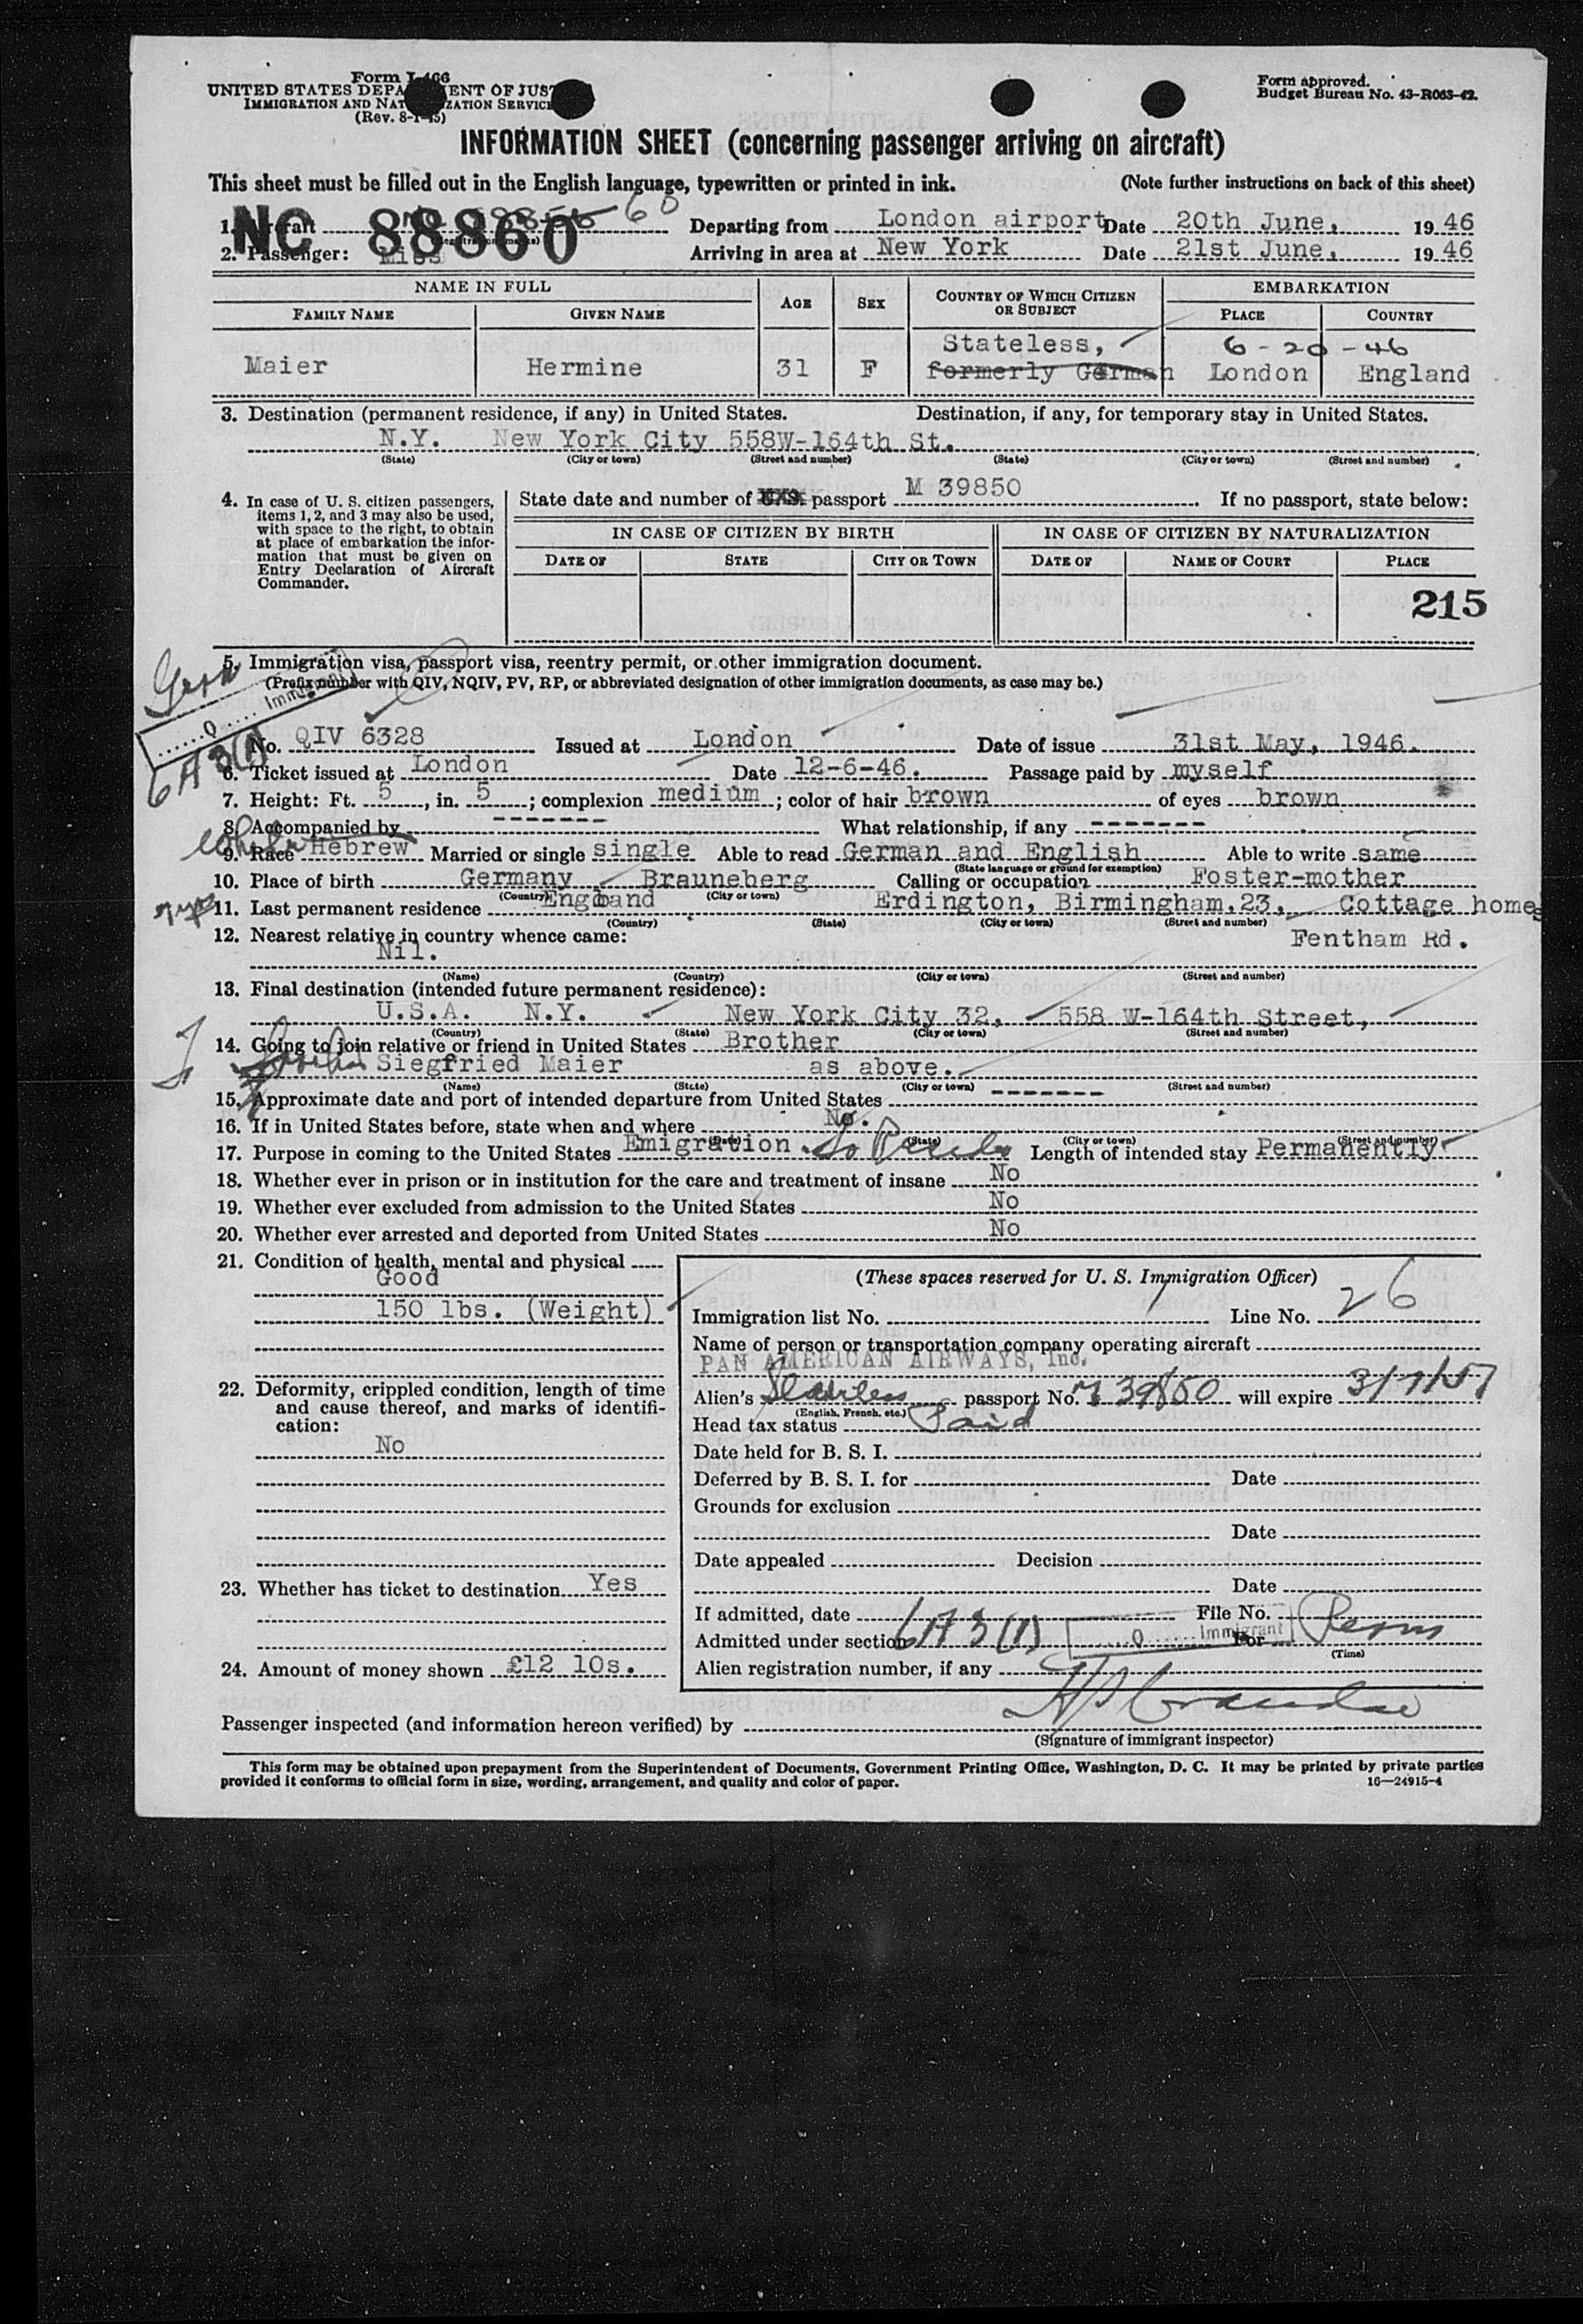 Form I-466
UNITED STATES DEPARTMENT OF JUSTICE
IMMIGRATION AND NATURALIZATION SERVICE
(Rev. 8-1-45)
Form approved.
Budget Bureau No. 43-R063-42.
INFORMATION SHEET (concerning passenger arriving on aircraft)
This sheet must be filled out in the English language, typewritten or printed in ink. (Note further instructions on back of this sheet)
1. Aircraft NC 88860 Departing from London airport Date 20th June, 1946
2. Passenger: Miss Arriving in area at New York Date 21st June, 1946
NAME IN FULL AGE SEX COUNTRY OF WHICH CITIZEN OR SUBJECT EMBARKATION
FAMILY NAME GIVEN NAME PLACE COUNTRY
Stateless, 6-20-46
Maier Hermine 31 F formerly German London England
3. Destination (permanent residence, if any) in United States. Destination, if any, for temporary stay in United States.
N.Y. New York City 558W-164th St.
(State) (City or town) (Street and number) (State) (City or town) (Street and number)
4. In case of U. S. citizen passengers, items 1, 2, and 3 may also be used, with space to the right, to obtain at place of embarkation the information that must be given on Entry Declaration of Aircraft Commander.
State date and number of U.S. passport M 39850 If no passport, state below:
IN CASE OF CITIZEN BY BIRTH IN CASE OF CITIZEN BY NATURALIZATION
DATE OF STATE CITY OR TOWN DATE OF NAME OF COURT PLACE
215
5. Immigration visa, passport visa, reentry permit, or other immigration document.
(Prefix number with QIV, NQIV, PV, RP, or abbreviated designation of other immigration documents, as case may be.)
Q Immigrant
No. QIV 6328 Issued at London Date of issue 31st May, 1946.
6A3(1)
6. Ticket issued at London Date 12-6-46. Passage paid by myself
7. Height: Ft. 5, in. 5; complexion medium; color of hair brown of eyes brown
8. Accompanied by ------- What relationship, if any -------
9. Race Hebrew Married or single single Able to read German and English Able to write same
(State language or ground for exemption)
10. Place of birth Germany Brauneberg Calling or occupation Foster-mother
(Country) (City or town)
11. Last permanent residence England Erdington, Birmingham,23, Cottage homes
(Country) (State) (City or town) (Street and number)
12. Nearest relative in country whence came: Fentham Rd.
Nil.
(Name) (Country) (City or town) (Street and number)
13. Final destination (intended future permanent residence):
U.S.A. N.Y. New York City 32, 558 W-164th Street,
(Country) (State) (City or town) (Street and number)
14. Going to join relative or friend in United States Brother
Siegfried Maier as above.
(Name) (State) (City or town) (Street and number)
15. Approximate date and port of intended departure from United States -------
16. If in United States before, state when and where No.
(Date) (State) (City or town) (Street and number)
17. Purpose in coming to the United States Emigration. To Reside Length of intended stay Permanently
18. Whether ever in prison or in institution for the care and treatment of insane No
19. Whether ever excluded from admission to the United States No
20. Whether ever arrested and deported from United States No
21. Condition of health, mental and physical
Good
150 lbs. (Weight)
22. Deformity, crippled condition, length of time and cause thereof, and marks of identification:
No
23. Whether has ticket to destination Yes
24. Amount of money shown £12 10s.
(These spaces reserved for U. S. Immigration Officer)
Immigration list No. Line No. 26
Name of person or transportation company operating aircraft
PAN AMERICAN AIRWAYS, Inc.
Alien's Stateless passport No. M 39850 will expire 3/1/51
(English, French, etc.)
Head tax status Paid
Date held for B. S. I.
Deferred by B. S. I. for Date
Grounds for exclusion
Date
Date appealed Decision
Date
If admitted, date File No.
Admitted under section 6A3(1) Q Immigrant For Perm
(Time)
Alien registration number, if any
Passenger inspected (and information hereon verified) by
(Signature of immigrant inspector)
This form may be obtained upon prepayment from the Superintendent of Documents, Government Printing Office, Washington, D. C. It may be printed by private parties
provided it conforms to official form in size, wording, arrangement, and quality and color of paper. 16—24915-4